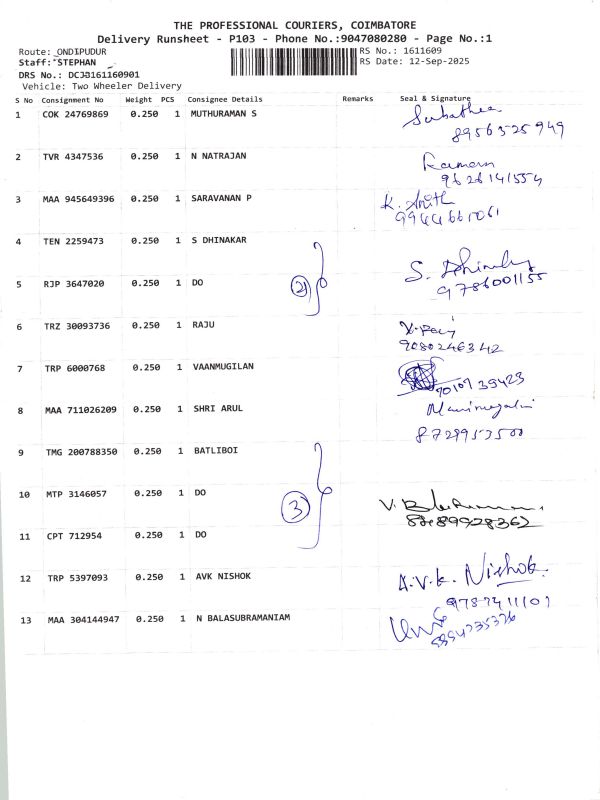 THE PROFESSIONAL COURIERS, COIMBATORE
Delivery Runsheet - P103 - Phone No.:9047080280 - Page No.:1
Route: ONDIPUDUR RS No.: 1611609
Staff: STEPHAN RS Date: 12-Sep-2025
DRS No.: DCJB161160901
Vehicle: Two Wheeler Delivery
S No Consignment No Weight PCS Consignee Details Remarks Seal & Signature
1 COK 24769869 0.250 1 MUTHURAMAN S
8956325949
2 TVR 4347536 0.250 1 N NATRAJAN
9626141554
3 MAA 945649396 0.250 1 SARAVANAN P K.
4 TEN 2259473 0.250 1 S DHINAKAR
5 RJP 3647020 0.250 1 DO S.
9786001155
6 TRZ 30093736 0.250 1 RAJU
9080246342
7 TRP 6000768 0.250 1 VAANMUGILAN
8 MAA 711026209 0.250 1 SHRI ARUL
9 TMG 200788350 0.250 1 BATLIBOI
10 MTP 3146057 0.250 1 DO 3 V.
11 CPT 712954 0.250 1 DO
12 TRP 5397093 0.250 1 AVK NISHOK A.V.K. Nishok.
9787411101
13 MAA 304144947 0.250 1 N BALASUBRAMANIAM